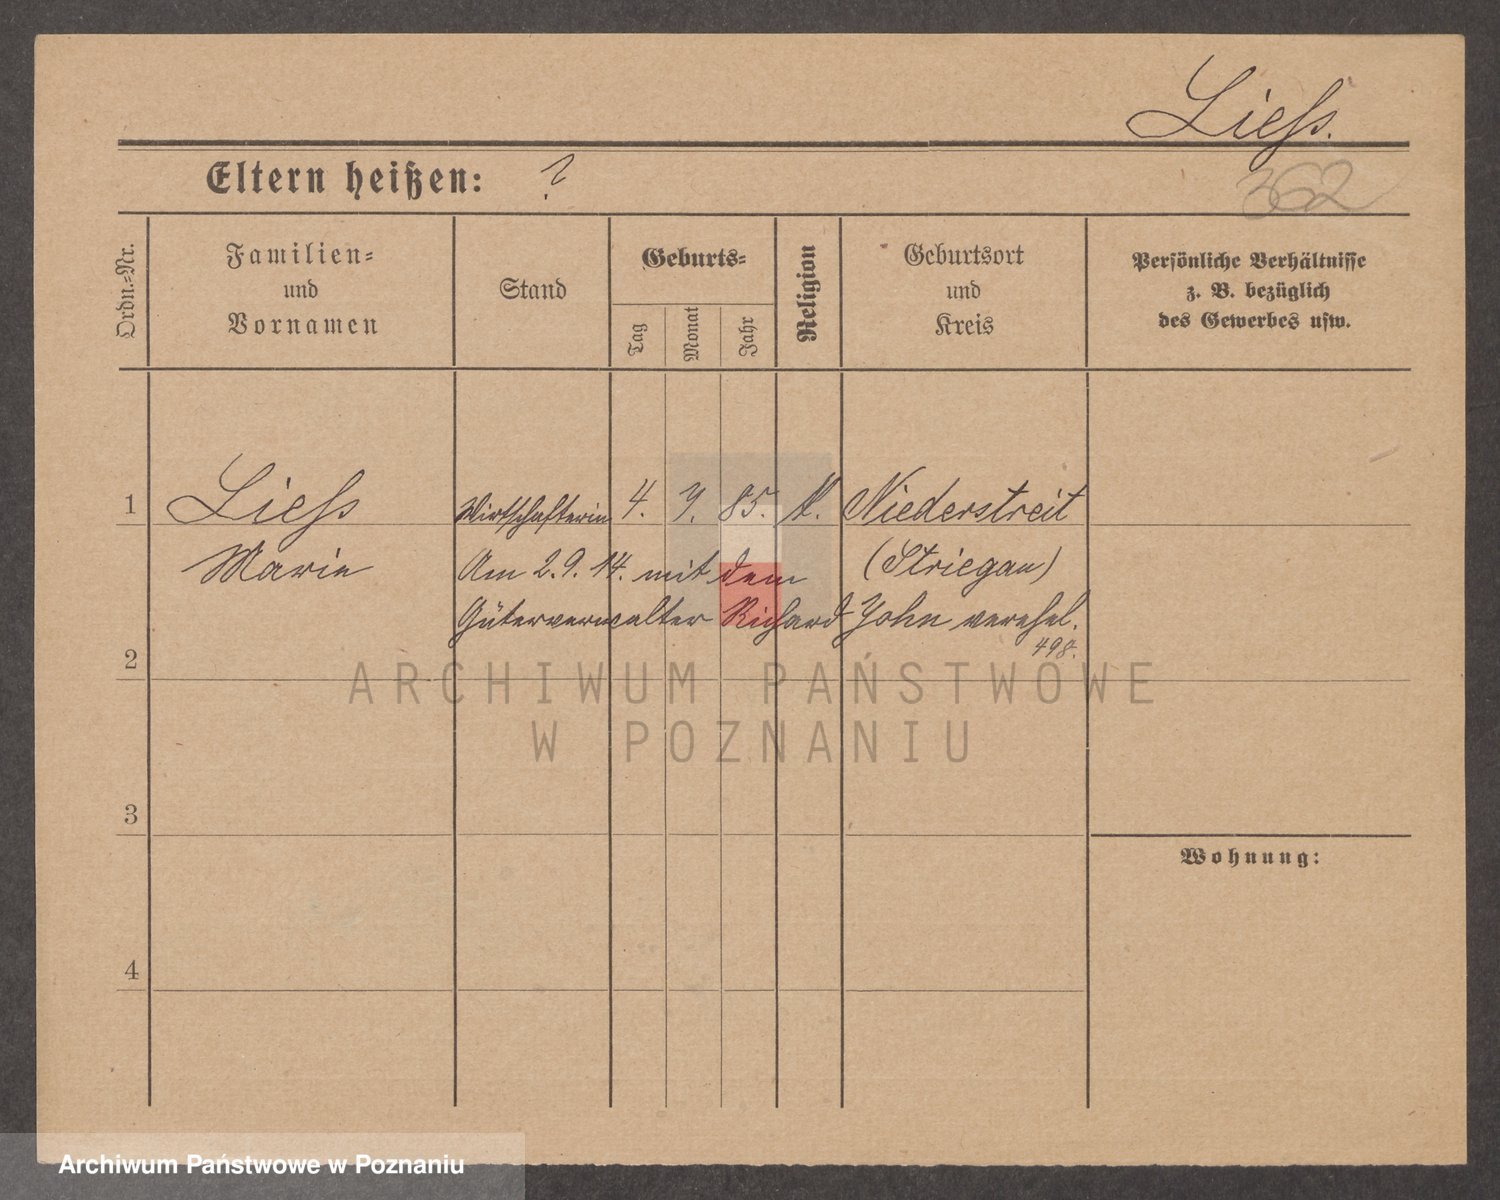 Liess.
Eltern heißen: ?
362
Ordn.=Nr.
Familien=
und
Vornamen
Stand
Geburts=
Tag
Monat
Jahr
Religion
Geburtsort
und
Kreis
Persönliche Verhältnisse
z. B. bezüglich
des Gewerbes usw.
1 Liess Wirtschafterin 4. 7. 85. K. Niederstreit
Marie Am 2.9.14. mit dem (Striegau)
Güterverwalter Richard John verehel.
498.
2
ARCHIWUM PAŃSTWOWE
W POZNANIU
3
Wohnung:
4
Archiwum Państwowe w Poznaniu